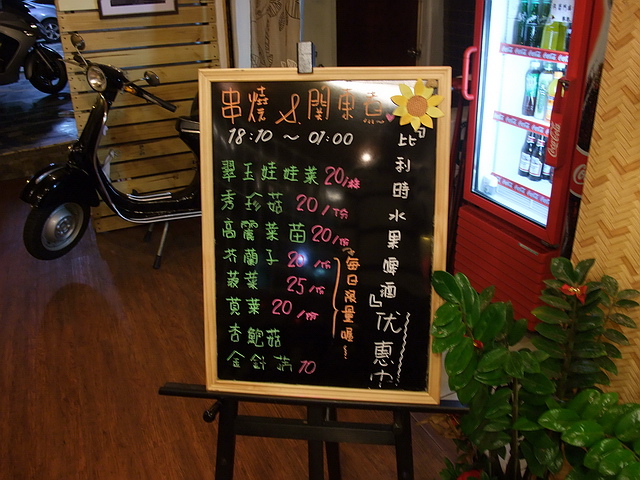 串燒 & 關東煮
18:10 ～ 01:00
翠玉娃娃菜 20/株
秀珍菇 20/份
高麗菜苗 20/份
芥蘭子 20/份
菠菜 25/份
莧菜 20/份
杏鮑菇
金針菇 10
每日限量喔~
『比利時水果啤酒』优惠中
Coca-Cola